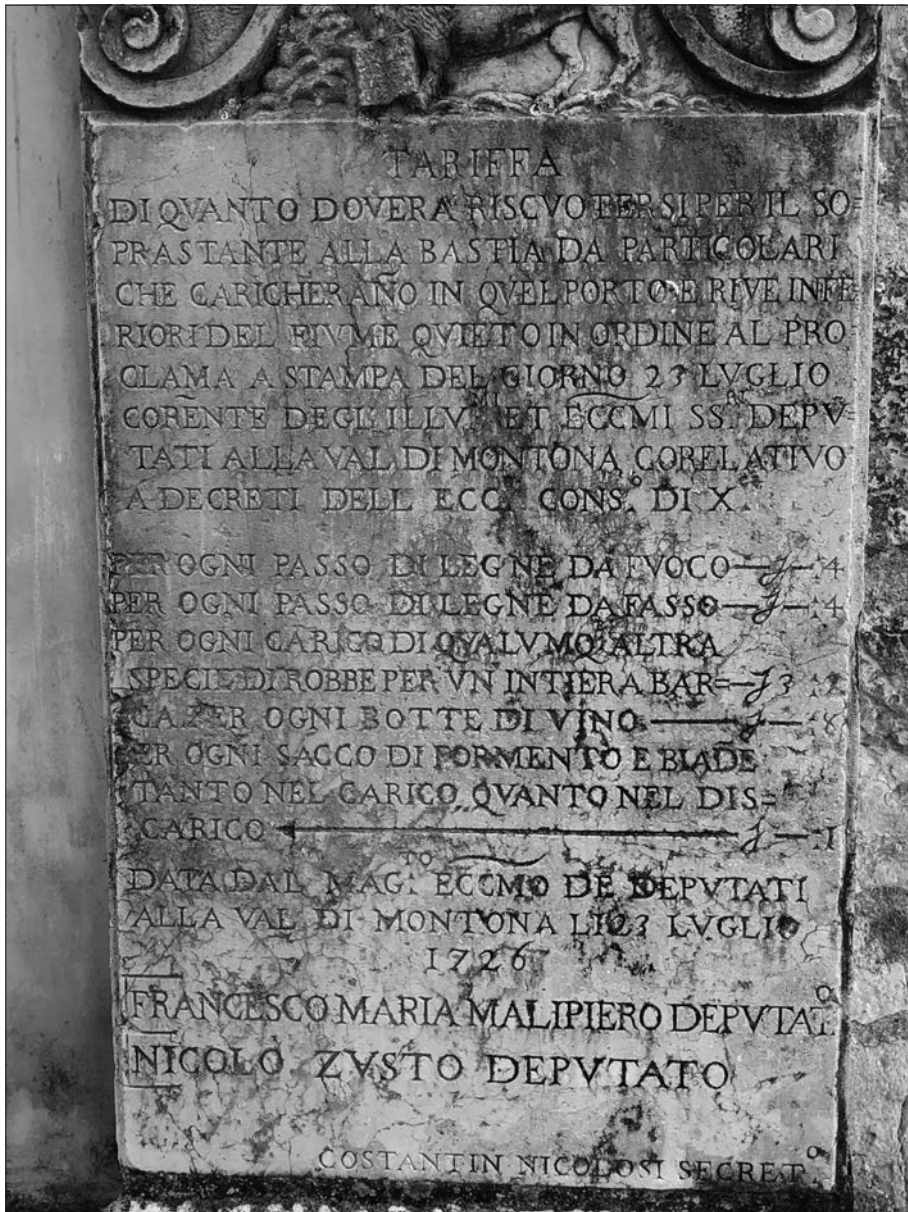 TARIFFA
DI QVANTO DOVERA RISCVOTERSI PER IL SO=
PRASTANTE ALLA BASTIA DA PARTICOLARI
CHE CARICHERAÑO IN QVEL PORTO E RIVE INFE
RIORI DEL FIVME QVIETO IN ORDINE AL PRO=
CLAMA A STAMPA DEL GIORNO 23 LVGLIO
COREÑTE DEGL' ILLV.MI ET ECCMI SS.RI DEPV=
TATI ALLA VAL DI MONTONA CORELATIVO
A DECRETI DELL ECC. CONS.O DI X
PER OGNI PASSO DI LEGNE DA FVOCO — :4
PER OGNI PASSO DI LEGNE DA FASSO — :4
PER OGNI CARICO DI QVALVMQ: ALTRA
SPECIE DI ROBBE PER VN INTIERA BAR= — 3 :2
CA PER OGNI BOTTE DI VINO — :8
PER OGNI SACCO DI FORMENTO E BIADE
TANTO NEL CARICO QVANTO NEL DIS=
CARICO — :1
DATA DAL MAG.TO ECCMO DE DEPVTATI
ALLA VAL DI MONTONA LI 23 LVGLIO
1726
FRANCESCO MARIA MALIPIERO DEPVTAT.O
NICOLO ZVSTO DEPVTATO
COSTANTIN NICOLOSI SECRET.O